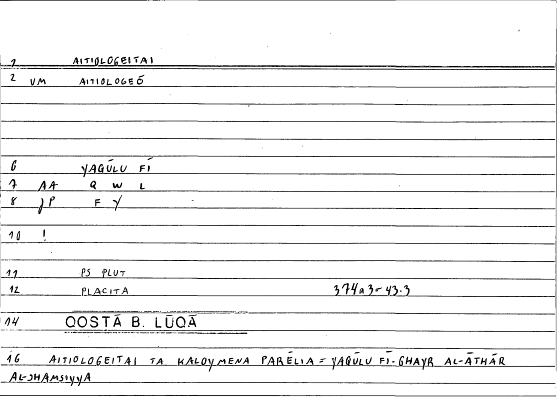 1 AITIOLOGEITAI
2 VM AITIOLOGEŌ
6 YAQŪLU FĪ
7 AA Q W L
8 JP F Y
10 !
11 PS PLUT
12 PLACITA 374a3-43.3
14 QOSṬĀ B. LŪQĀ
16 AITIOLOGEITAI TA KALOYMENA PARĒLIA = YAQŪLU FĪ-GHAYR AL-ĀTHĀR
AL-SHAMSIYYA